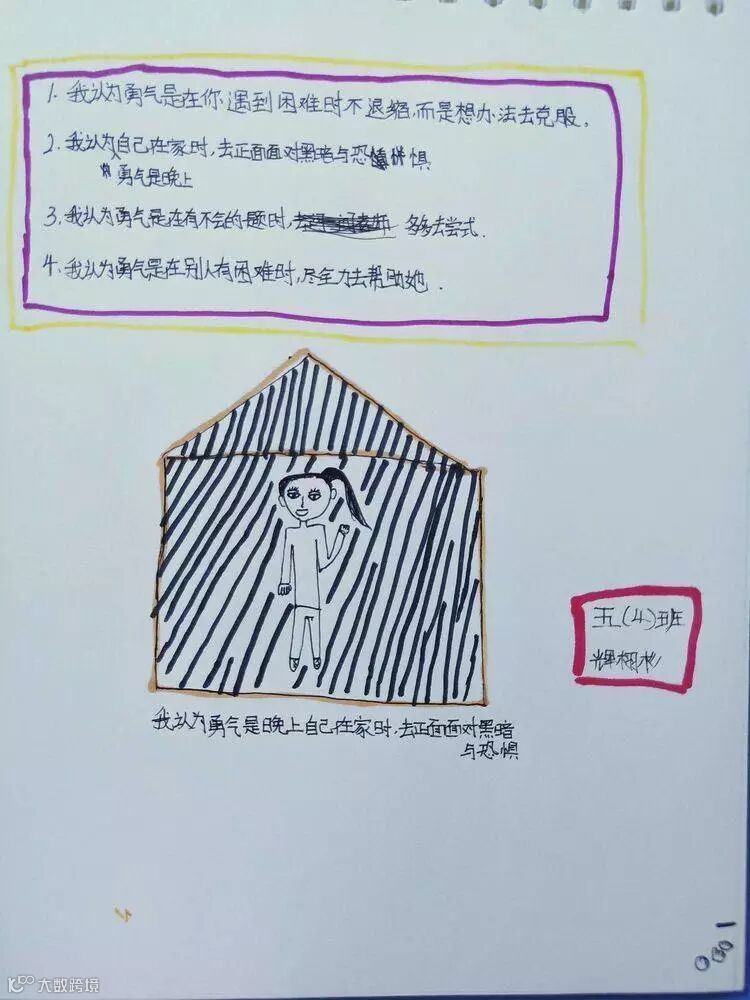 1. 我认为勇气是在你遇到困难时不退缩,而是想办法去克服。
2. 我认为自己在家时,去正面面对黑暗与恐惧
勇气是晚上
3. 我认为勇气是在有不会的题时, 多多去尝式.
4. 我认为勇气是在别人有困难时,尽全力去帮助她.
我认为勇气是晚上自己在家时,去正面面对黑暗
与恐惧
五(4)班
大数跨境